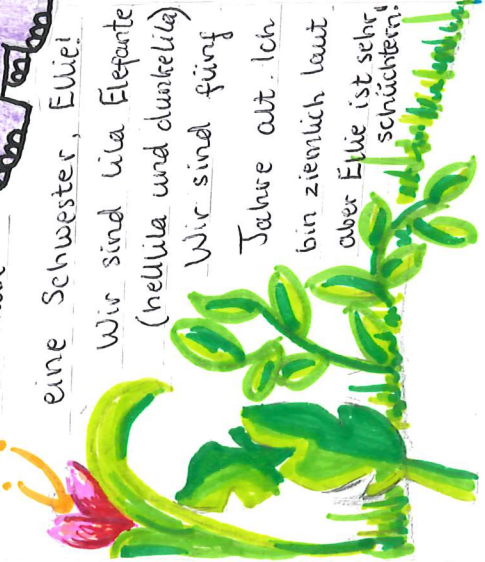 eine Schwester, Ellie!
Wir sind lila Elefante
(helllila und dunkelila)
Wir sind fünf
Jahre alt. Ich
bin ziemlich laut
aber Ellie ist sehr
schüchtern.